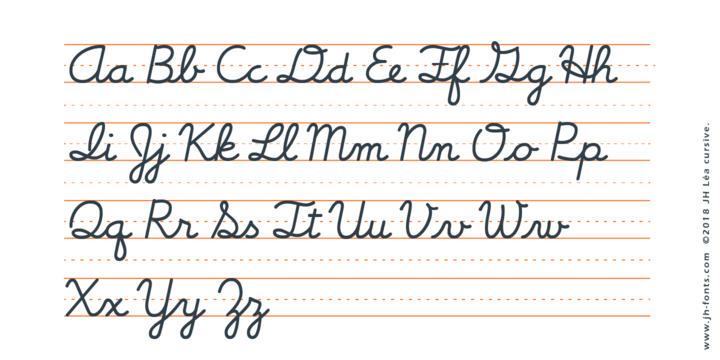 Aa Bb Cc Dd Ee Ff Gg Hh
Ii Jj Kk Ll Mm Nn Oo Pp
Qq Rr Ss Tt Uu Vv Ww
Xx Yy Zz
www.jh-fonts.com ©2018 JH Léa cursive.